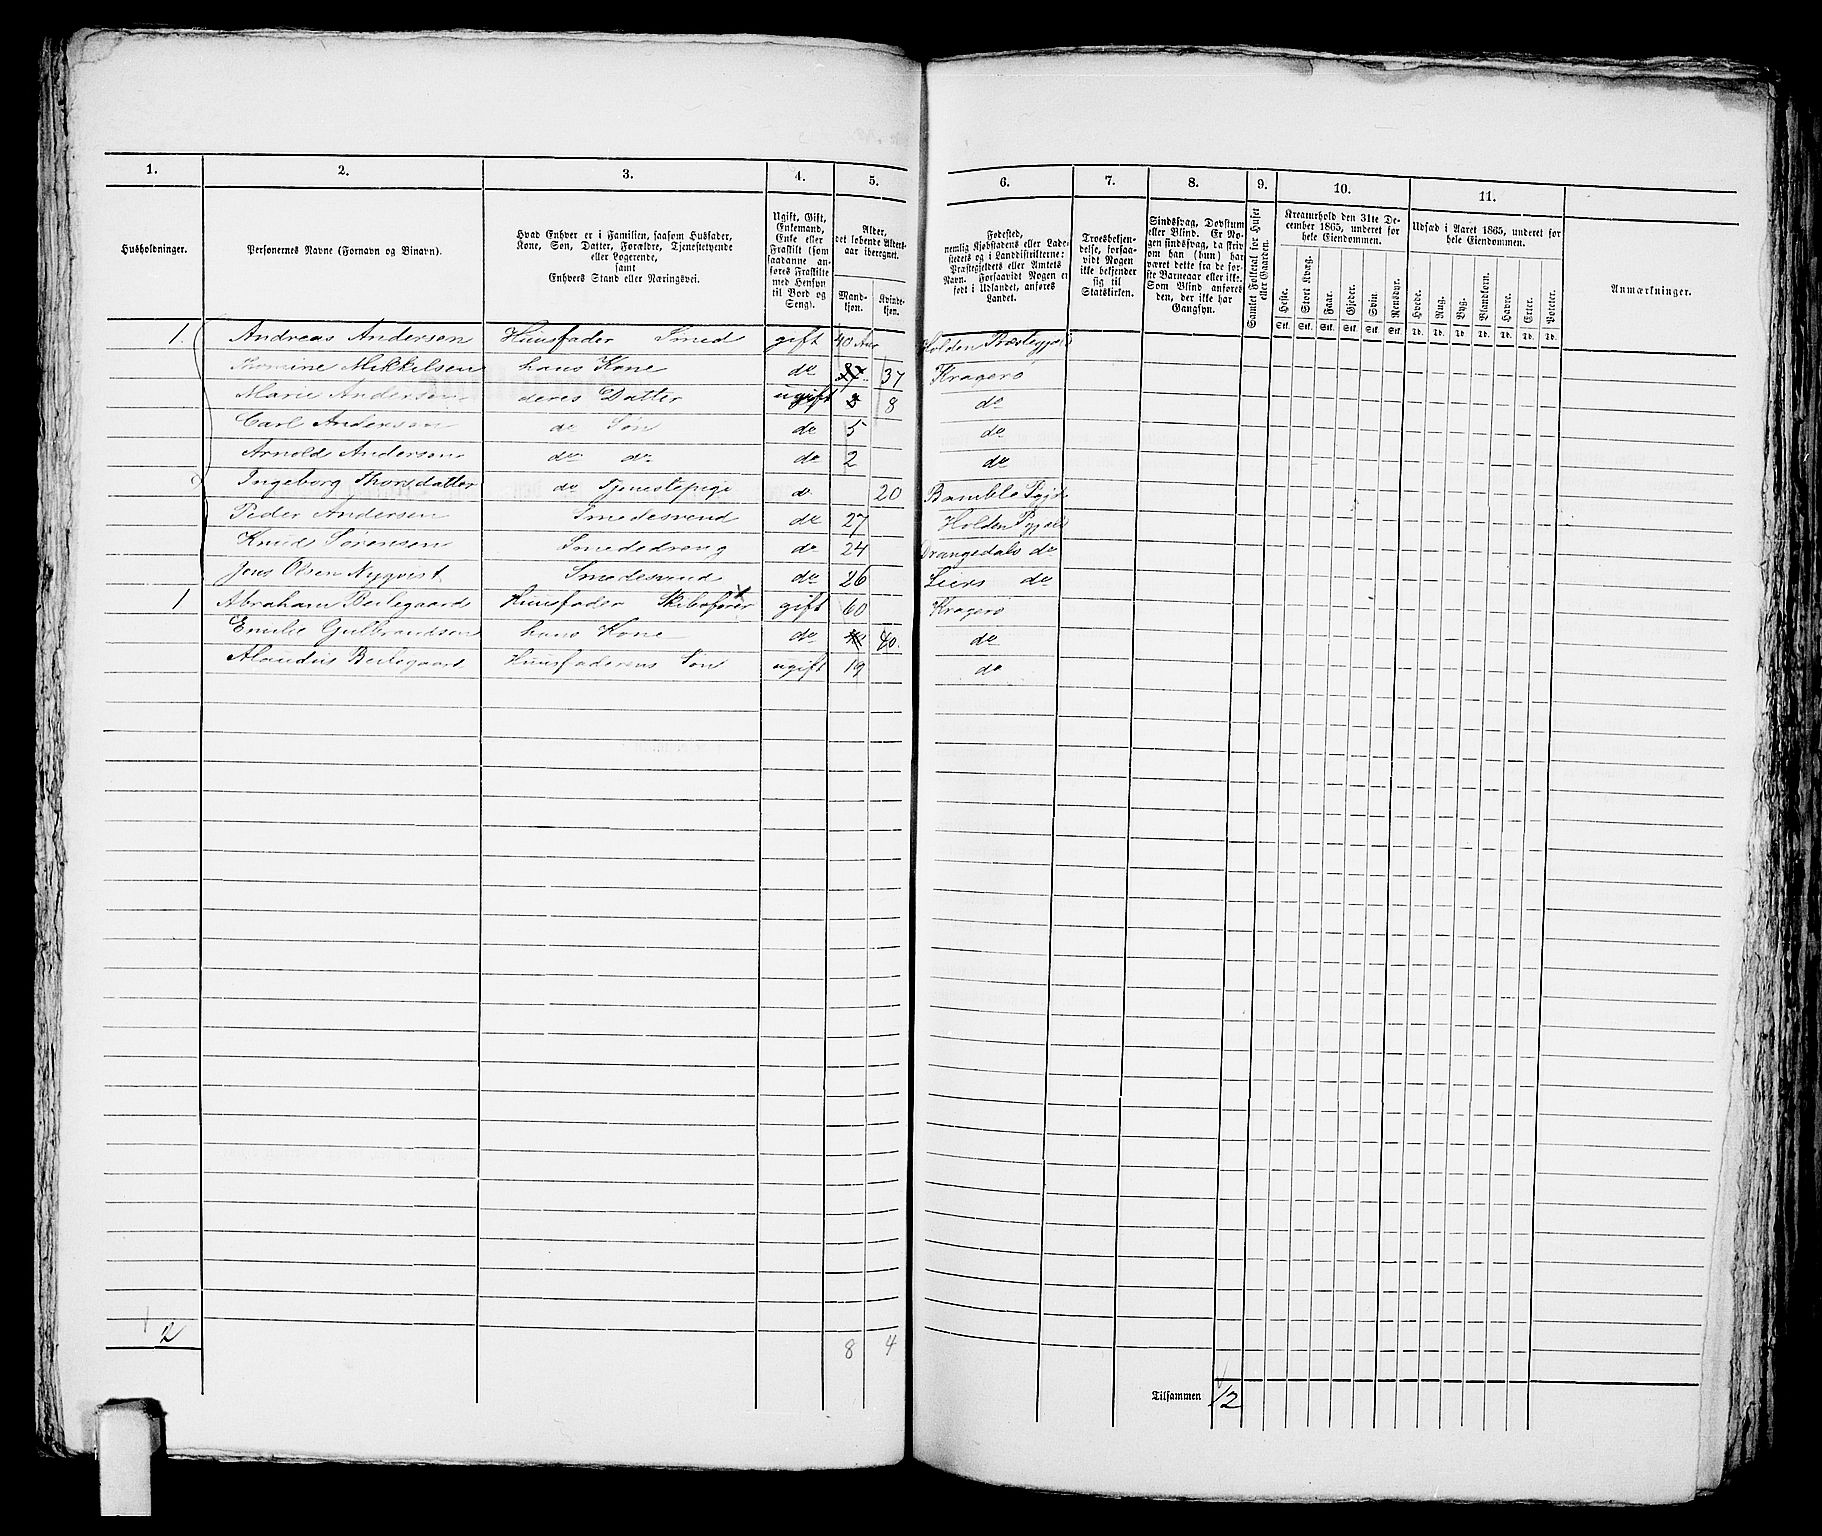 1. 2. 3. 4. 5. 6. 7. 8. 9. 10. 11.
Husholdninger.
Personernes Navne (Fornavn og Binavn).
Hvad Enhver er i Familien, saasom Husfader,
Kone, Søn, Datter, Forældre, Tjenestetyende
eller Logerende,
samt
Enhvers Stand eller Næringsvei.
Ugift, Gift,
Enkemand,
Enke eller
Fraskilt (som
saadanne an-
føres Fraskilte
med Hensyn
til Bord og
Seng).
Alder,
det løbende Alders-
aar iberegnet.
Mand-
kjøn.
Kvinde-
kjøn.
Fødested,
nemlig Kjøbstadens eller Lade-
stedets og i Landdistrikterne:
Præstegjeldets eller Amtets
Navn. Forsaavidt Nogen er
født i Udlandet, anføres
Landet.
Troesbekjen-
delse, forsaa-
vidt Nogen
ikke bekjender
sig til
Statskirken.
Sindssvag, Døvstum
eller Blind. Er No-
gen sindssvag, da skriv
om han (hun) har
været dette fra de før-
ste Barneaar eller ikke.
Som Blind anføres
den, der ikke har
Gangsyn.
Samlet Folketal for Huset
eller Gaarden.
Kreaturhold den 31te De-
cember 1865, underet for
hele Eiendommen.
Heste. Stort Kvæg. Faar. Gjeder. Svin. Rensdyr.
Stk. Stk. Stk. Stk. Stk. Stk.
Udsæd i Aaret 1865, underet for
hele Eiendommen.
Hvede. Rug. Byg. Blandkorn. Havre. Erter. Poteter.
Td. Td. Td. Td. Td. Td. Td.
Anmærkninger.
1. Andreas Andersen Huusfader Smed gift 40 Aar Holden
Mikkelsen hans Kone do 37 Kragerø
Marie Andersen deres Datter ugift 8 do
Carl Andersen do Søn do 5 do
Arnold Andersen do do do 2 do
Ingeborg Thorsdatter do Tjenestepige do 20 Bamble
Peder Andersen Smedesvend do 27 Holden
Knud Sørensen Smededreng do 24 Drangedals do
Jens Olsen Nyqvist Smedesvend do 26 do
1 Abraham Beilegaard Huusfader gift 60 Kragerø
Emilie Gulbrandsen hans Kone do 40. do
Beilegaard Huusfaderens Søn ugift 19 do
2 8 4
Tilsammen 12